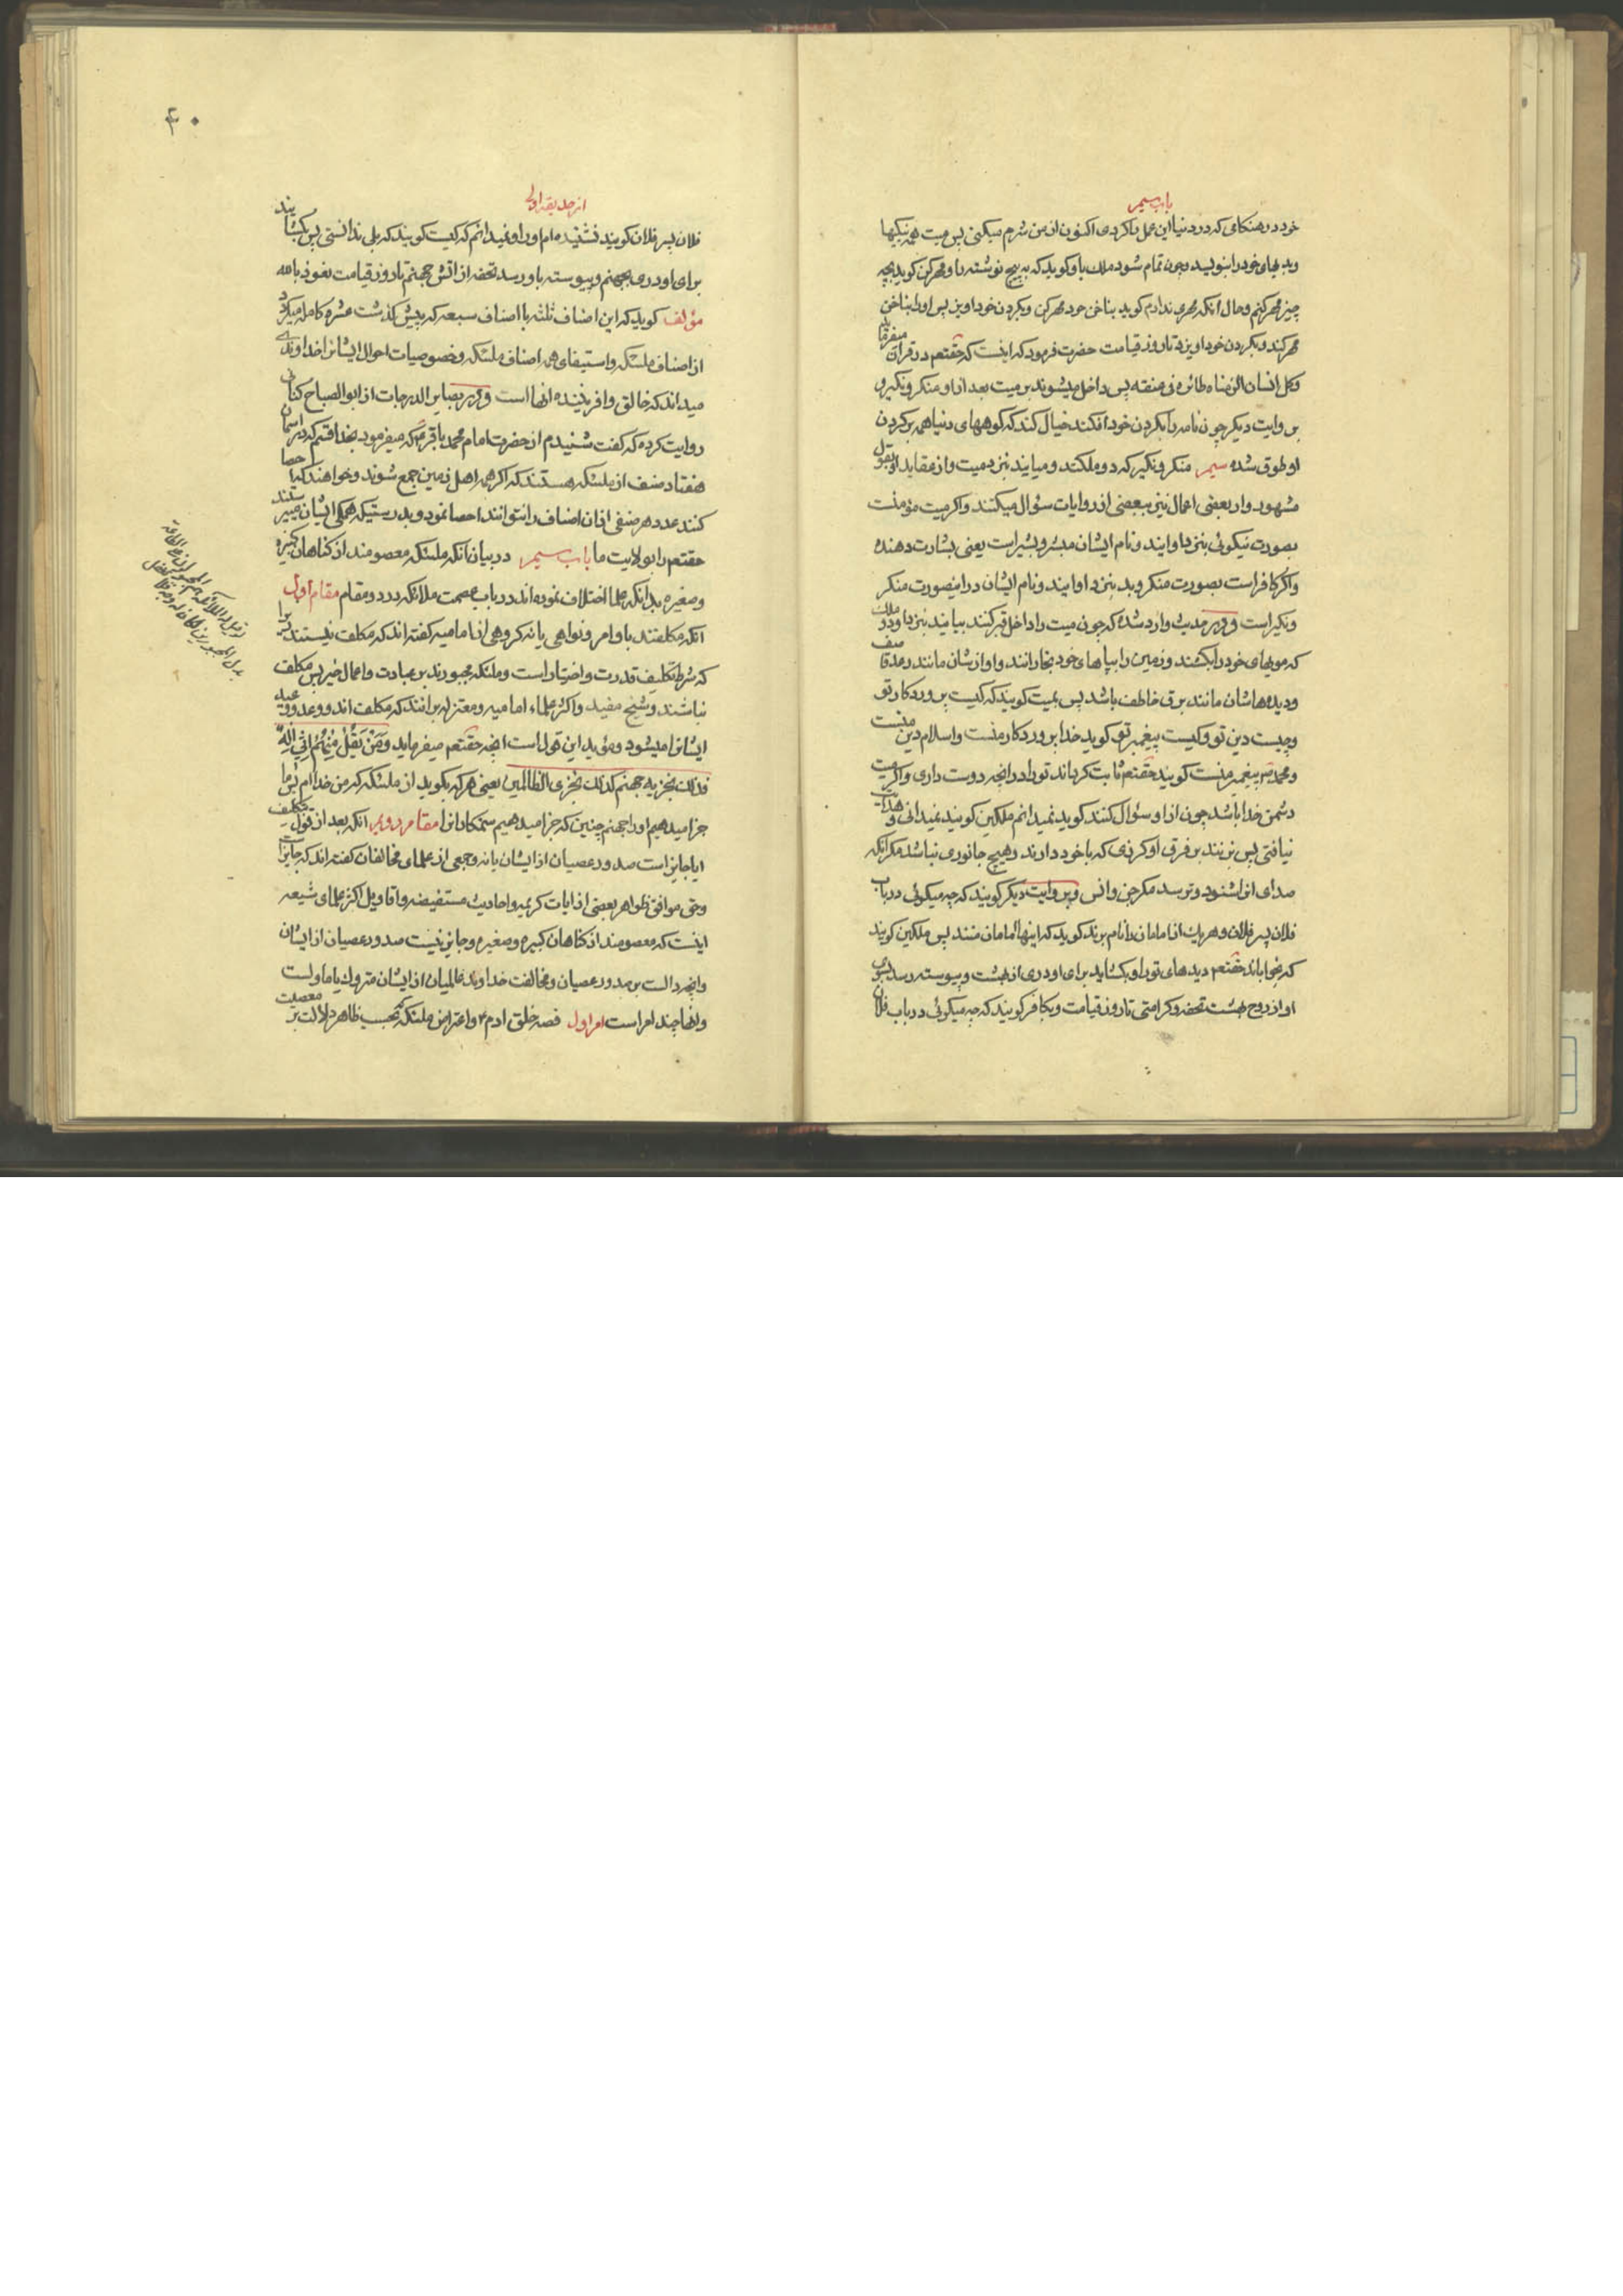 باب سیم
خود در هنکامی که در دنیا این عمل را کردی اکنون از من شرم میکنی پس میت همه نیکیها
وبدیهای خود را بنویسد وچون تمام شود ملک باو کوید که به پیچ نوشته را ومهر کن کوید بچه
چیز مهر کنم وحال آنکه مهری ندارم کوید بناخن خود مهر کن وبکردن خود اویز پس او را بناخن
مهر کند وبکردن خود اویزد تا روز قیامت حضرت فرمود که اینست که حقتعم در قران میفرماید
وکل انسان الزمناه طائره فی عنقه پس داخل میشوند بر میت بعد از او منکر ونکیر و
بروایت دیکر چون نامه را بکردن خود افکند خیال کند که کوههای دنیا همه بر کردن
او طوق شده سیم منکر ونکیر که دو ملکند ومیایند بنزد میت واز عقاید او بقول
مشهور واز بعضی اعمال نیز ببعضی از روایات سؤال میکنند واکر میت مؤمنست
بصورت نیکوئی بنزد او ایند ونام ایشان مبشر وبشیر است یعنی بشارت دهنده
واکر کافر است بصورت منکر وبد بنزد او ایند ونام ایشان در اینصورت منکر
ونکیر است ودر حدیث وارد شده که چون میت را داخل قبر کنند بیایند بنزد او دو ملک
که مویهای خود را بکشند وزمین را بپاهای خود بخارانند واوازشان مانند رعد قاصف
ودیدهاشان مانند برق خاطف باشد پس بمیت کویند که کیست پروردکار تو
وچیست دین تو وکیست پیغمبر تو کوید خدا پروردکار منست واسلام دین منست
ومحمد ص پیغمبر منست کویند حقتعم ثابت کرداند تو را در انچه دوست داری واکر میت
دشمن خدا باشد چون از او سؤال کنند کوید نمیدانم ملکین کویند نمیدانی وهدایت
نیافتی پس بزنند بر فرق او کرزی که با خود دارند وهیچ جانوری نباشد مکر آنکه
صدای انرا شنود وترسد مکر جن وانس وبروایت دیکر کویند که چه میکوئی در باب
فلان پسر فلان وهر یک از امامان را نام برند کوید که اینها امامان منند پس ملکین کویند
که بخوابان حقتعم دیدهای تو را وبکشاید برای او دری از بهشت وپیوسته رسد بسوی
او از روح بهشت تحفه وکرامتی تا روز قیامت وبکافر کویند که چه میکوئی در باب فلان
۴۰
از حدیقه اولی
فلان پسر فلان کویند نشنیده‌ام او را ونمیدانم که کیست کویند که بلی ندانستی پس بکشایند
برای او دری بجهنم وپیوسته باو رسد تحفه از اتش جهنم تا روز قیامت نعوذ بالله
مؤلف کوید که این اصناف ثلثه با اصناف سبعه که پیش کذشت عشره کامله میکردد
از اصناف ملئکه واستیفای همه اصناف ملئکه وخصوصیات احوال ایشانرا خداوندی
میداند که خالق وافریننده انها است ودر بصایر الدرجات از ابو الصباح کنانی
روایت کرده که کفت شنیدم از حضرت امام محمد باقر ع که میفرمود بخدا قسم که در اسمان
هفتاد صنف از ملئکه هستند که اکر همه اهل زمین جمع شوند وخواهند که احصا
کنند عدد هر صنفی از ان اصناف را نتوانند احصا نمود وبدرستیکه همکی ایشان میپرستند
حقتعم را بولایت ما باب سیم در بیان آنکه ملئکه معصومند از کناهان کبیره
وصغیره بدانکه علما اختلاف نموده اند در باب عصمت ملائکه در دو مقام مقام اول
آنکه مکلفند باوامر ونواهی یا نه کروهی از امامیه کفته اند که مکلف نیستند زیرا
که شرط تکلیف قدرت واختیار است وملئکه مجبورند بر عبادت واعمال خیر پس مکلف
نباشند وشیخ مفید واکثر علماء امامیه ومعتزله برانند که مکلف اند ووعد ووعید
ایشانرا میشود ومؤید این قول است انچه حقتعم میفرماید وَمَنْ یَقُلْ مِنْهُمْ اِنّی اِلهٌ
فذلک نجزیه جهنم کذلک نجزی الظالمین یعنی هر که بکوید از ملئکه که من خدا ام پس ما
جزا میدهیم او را جهنم چنین که جزا میدهیم ستمکارانرا مقام دویم آنکه بعد از قول تکلیف
ایا جایز است صدور عصیان از ایشان یا نه وجمعی از علمای مخالفان کفته اند که جایز است
وحق موافق ظواهر بعضی از ایات کریمه واحادیث مستفیضه واقاویل اکثر علمای شیعه
اینست که معصومند از کناهان کبیره وصغیره وجایز نیست صدور عصیان از ایشان
وانچه دالست بر صدور عصیان ومخالفت خداوند عالمیان از ایشان متروک یا ماولست
وانها چند امر است امر اول قصه خلق ادم ع واعتراض ملئکه که بحسب ظاهر دلالت بر معصیت